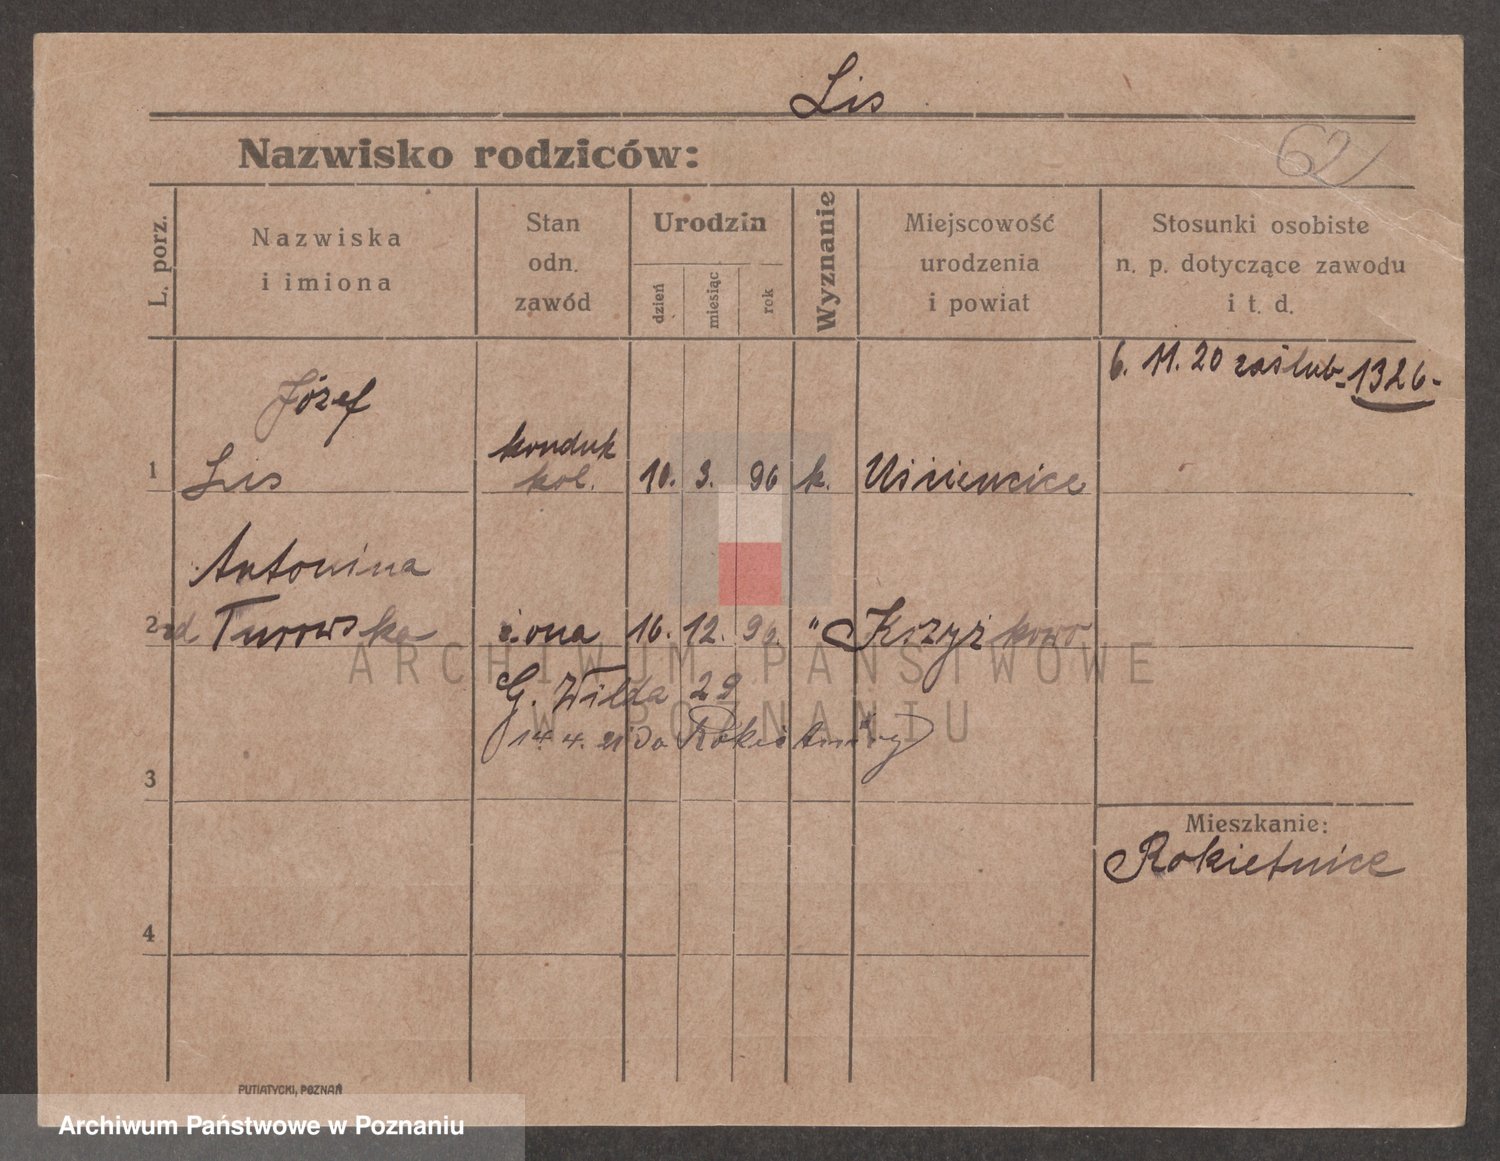 Lis
Nazwisko rodziców:
62
L. porz.
Nazwiska
i imiona
Stan
odn.
zawód
Urodzin
dzień
miesiąc
rok
Wyznanie
Miejscowość
urodzenia
i powiat
Stosunki osobiste
n. p. dotyczące zawodu
i t. d.
6. 11. 20 zaślub. 1326-
Józef
konduk
1 Lis kol. 10. 3. 96 k.
Antonina
2 Turowska żona 16. 12. " Krzyżkowo
G. Wilda 29
14. 4. 21 do
3
Mieszkanie:
Rokietnice
4
PUTIATYCKI, POZNAŃ
ARCHIWUM PAŃSTWOWE
W POZNANIU
Archiwum Państwowe w Poznaniu